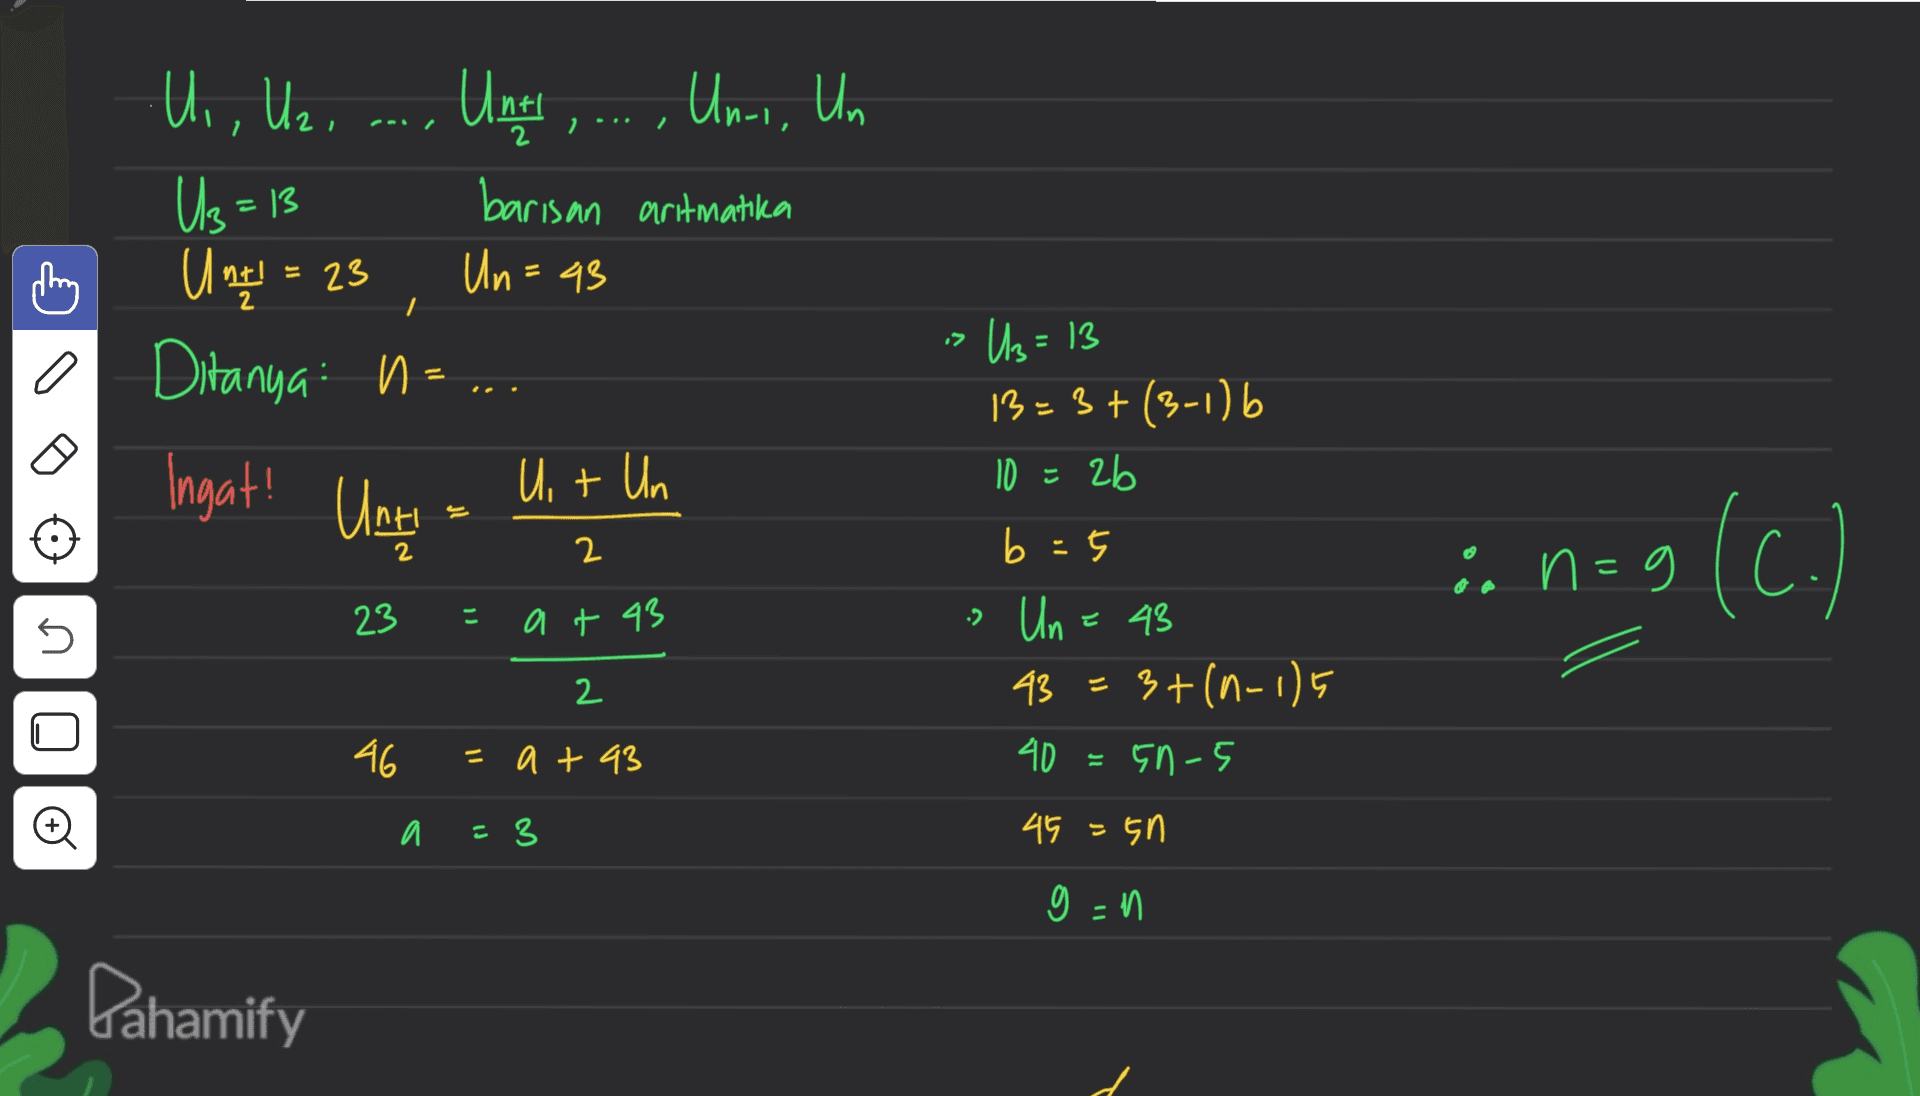 U₁, U₂, ..., U(n+1)/2, ..., Uₙ₋₁, Uₙ
U₃ = 13 barisan aritmatika
U(n+1)/2 = 23, Uₙ = 43
Ditanya: n = ...
Ingat! U(n+1)/2 = (U₁ + Uₙ)/2
23 = (a + 43)/2
46 = a + 43
a = 3
U₃ = 13
13 = 3 + (3-1)b
10 = 2b
b = 5
Uₙ = 43
43 = 3 + (n-1)5
40 = 5n - 5
45 = 5n
9 = n
∴ n = 9 (C.)
Pahamify